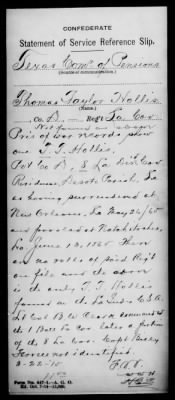 CONFEDERATE
Statement of Service Reference Slip.
Texas Com'r of Pensions
(Source of communication.)
Thomas Taylor Hollis
(Name.)
Co. B. — Reg't La Cav
Not found as above
Pris of War records show
one T. T. Hollis,
Pvt Co B, 8 La Cav
Residence Desoto Parish, La
as having surrendered at
New Orleans, La May 26/65
and paroled at Natchitoches,
La June 13, 1865. There
are no rolls of said Regt
on file and the above
is the only T. T. Hollis
found on the C.S.A.
Lt Col B W Clark commanded
the 1 Batt La Cav later a portion
of the 8 La Cav. Capt
Service not identified.
3-22-10
Form No. 447-4—A. G. O.